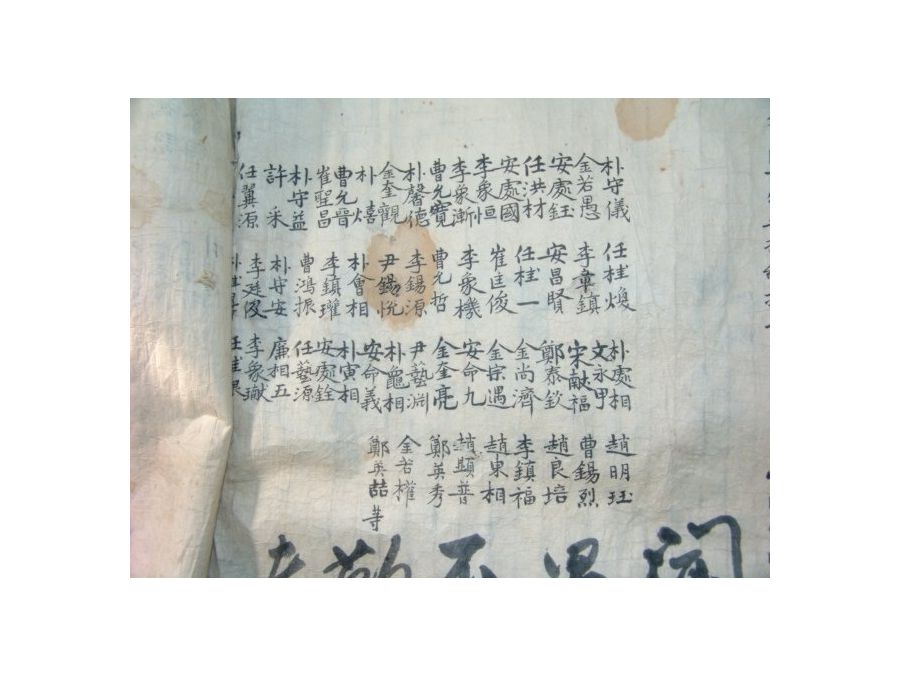 朴守儀 金若愚 安處鈺 任洪材 安處國 李象恒 李象漸 曹允寬 朴馨德 金奎觀 朴熺 曹允晉 崔聖昌 朴守益 許采 任翼源
任桂煥 李章鎮 安昌賢 任桂一 崔匡俊 李象機 曹允哲 李錫源 尹錫悅 朴會相 李鎮瓘 曹鴻振 朴守安 李廷俊
朴處相 文永甲 宋獻福 鄭泰欽 金尚濟 金宗遇 安命九 金奎亮 尹藝淵 朴龜相 安命義 朴寅相 安處銓 任藝源 廉相五 李象瓛
趙明珏 曹錫烈 趙良培 李鎮福 趙東相 趙顯普 鄭英秀 金若權 鄭英喆 等